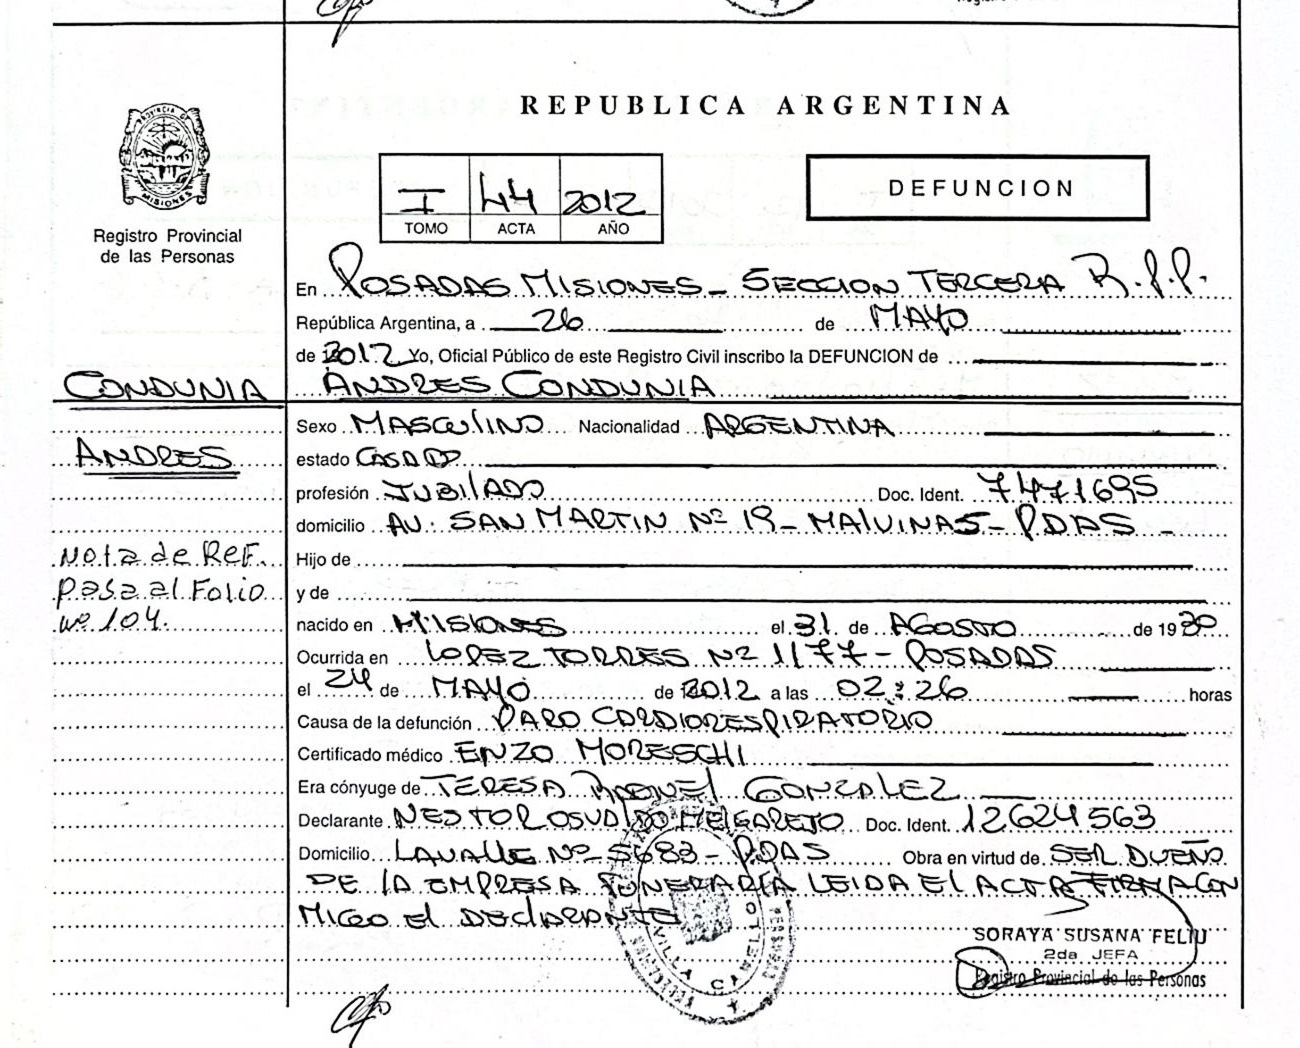 REPUBLICA ARGENTINA
PROVINCIA DE
MISIONES
Registro Provincial
de las Personas
I 44 2012
TOMO ACTA AÑO
DEFUNCION
En POSADAS MISIONES - SECCION TERCERA R.P.P.
República Argentina, a 26 de MAYO
de 2012 Yo, Oficial Público de este Registro Civil inscribo la DEFUNCION de
CONDUNIA ANDRES CONDUNIA
Sexo MASCULINO Nacionalidad ARGENTINA
ANDRES estado CASADO
profesión JUBILADO Doc. Ident. 7471695
domicilio AV. SAN MARTIN Nº 19 - MALVINAS - PDAS -
Nota de REF. Hijo de
pasa al Folio y de
nº 104. nacido en MISIONES el 31 de AGOSTO de 1930
Ocurrida en LOPEZ TORRES Nº 1177 - POSADAS
el 24 de MAYO de 2012 a las 02:26 horas
Causa de la defunción PARO CARDIORESPIRATORIO
Certificado médico ENZO MORESCHI
Era cónyuge de TERESA GONZALEZ
Declarante NESTOR OSVALDO MELGAREJO Doc. Ident. 12624563
Domicilio LAVALLE Nº 5683 - PDAS Obra en virtud de SER DUEÑO
DE LA EMPRESA FUNERARIA LEIDA EL ACTA FIRMA CON
MIGO EL DECLARANTE
VILLA CABELLO
SORAYA SUSANA FELIU
2da JEFA
Registro Provincial de las Personas